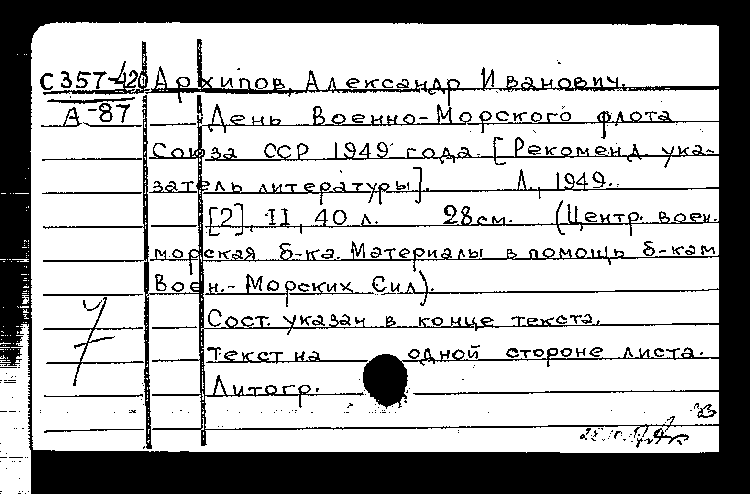 С357-420 Архипов, Александр Иванович.
А-87 День Военно-Морского флота
Союза ССР 1949 года. [Рекоменд. ука-
затель литературы]. Л., 1949.
[2], II, 40 л. 28см. (Центр. воен.
морская б-ка. Материалы в помощь б-кам
Воен.-Морских Сил).
7 Сост. указан в конце текста.
Текст на одной стороне листа.
Литогр.